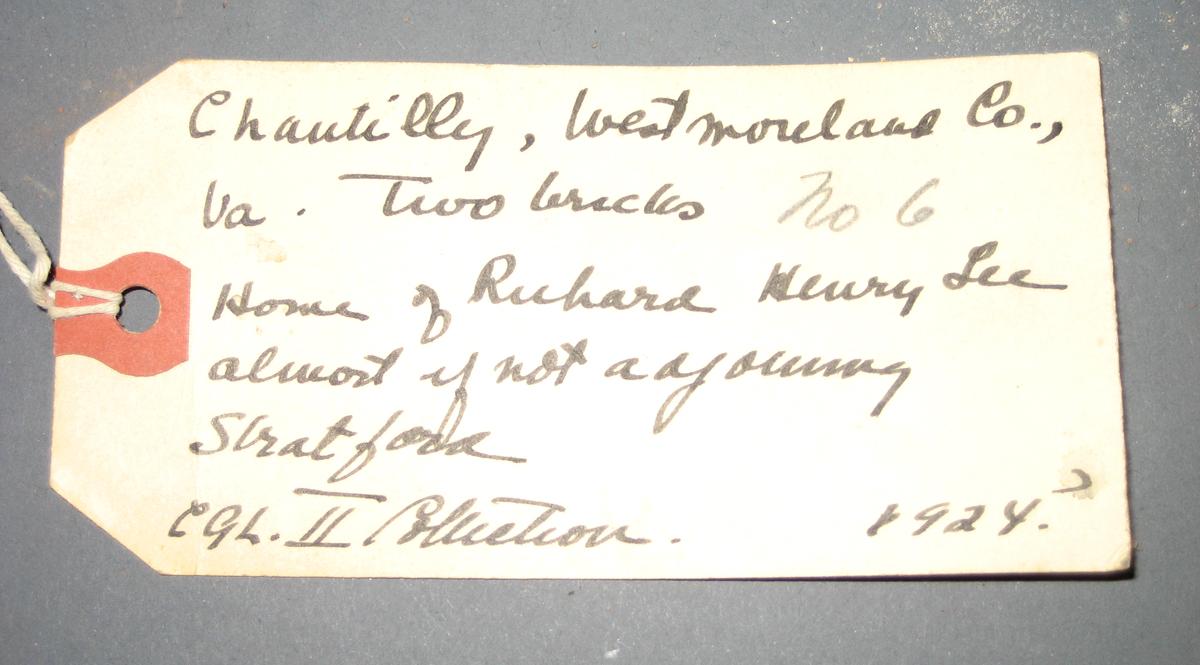 Chantilly, Westmoreland Co.,
Va. Two bricks No 6
Home of Richard Henry Lee
almost if not adjoining
Stratford
CGL. II Collection. 1924.